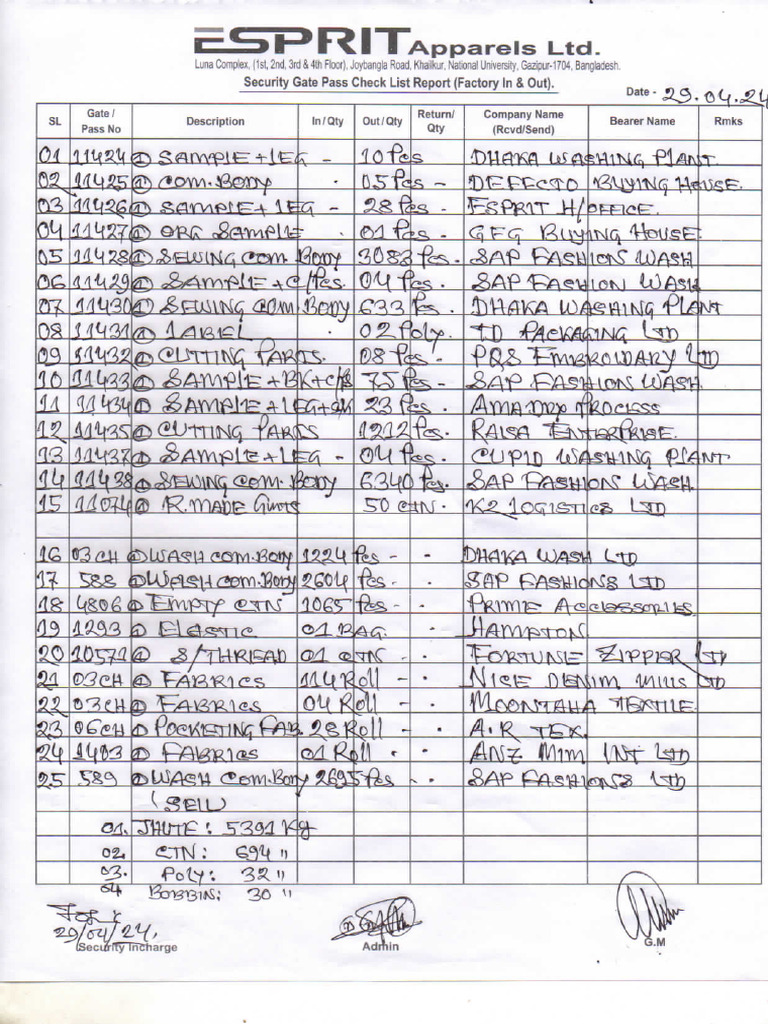 ESPRIT Apparels Ltd.
Luna Complex, (1st, 2nd, 3rd & 4th Floor), Joybangla Road, Khailkur, National University, Gazipur-1704, Bangladesh.
Security Gate Pass Check List Report (Factory In & Out).
Date - 29.04.24
SL Gate / Pass No Description In / Qty Out / Qty Return/ Qty Company Name (Rcvd/Send) Bearer Name Rmks
01 11424 SAMPLE + LEG - 10 Pcs DHAKA WASHING PLANT
02 11425 COM. BODY 05 Pcs - DEFECTO BUYING HOUSE.
03 11426 SAMPLE + LEG - 28 Pcs - ESPRIT H/OFFICE.
04 11427 ORG SAMPLE 01 Pcs - GFG BUYING HOUSE
05 11428 SEWING COM. BODY 3083 Pcs - SAP FASHION WASH
06 11429 SAMPLE + C/Pcs. 04 Pcs - SAP FASHION WASH
07 11430 SEWING COM. BODY 633 Pcs - DHAKA WASHING PLANT
08 11431 LABEL 02 Poly. TD PACKAGING LTD
09 11432 CUTTING PARTS. 08 Pcs - PQS EMBROWDARY LTD
10 11433 SAMPLE + BK + C/s 75 Pcs - SAP FASHION WASH
11 11434 SAMPLE + LEG + 23 Pcs - PROCESS
12 11435 CUTTING PARTS 1212 Pcs. RAISA ENTERPRISE.
13 11437 SAMPLE + LEG - 04 Pcs. CUPID WASHING PLANT
14 11438 SEWING COM. BODY 6340 Pcs. SAP FASHION WASH
15 11074 R. MADE Gmts 50 CTN. K2 LOGISTICS LTD
16 03 CH WASH COM. BODY 1224 Pcs - - DHAKA WASH LTD
17 588 WASH COM. BODY 2604 Pcs - - SAP FASHIONS LTD
18 4806 EMPTY CTN 1065 Pcs - - PRIME ACCLESSORIES
19 1293 ELASTIC 01 BAG. HAMPTON
20 10571 S/THREAD 01 CTN - - FORTUNE ZIPPER LTD
21 03 CH FABRICS 114 Roll - - NICE DENIM MILLS LTD
22 03 CH FABRICS 04 Roll - - MOONTAHA TEXTILE
23 06 CH POCKISTING FAB. 28 Roll - A.R TEX.
24 1403 FABRICS 01 Roll ANZ MIM INT LTD
25 589 WASH COM. BODY 2695 Pcs SAP FASHIONS LTD
(SELL)
01. JHUTE: 5391 Kg
02. CTN: 694 "
03. POLY: 32 "
04 BOBBIN: 30 "
29/04/24.
Security Incharge Admin G.M